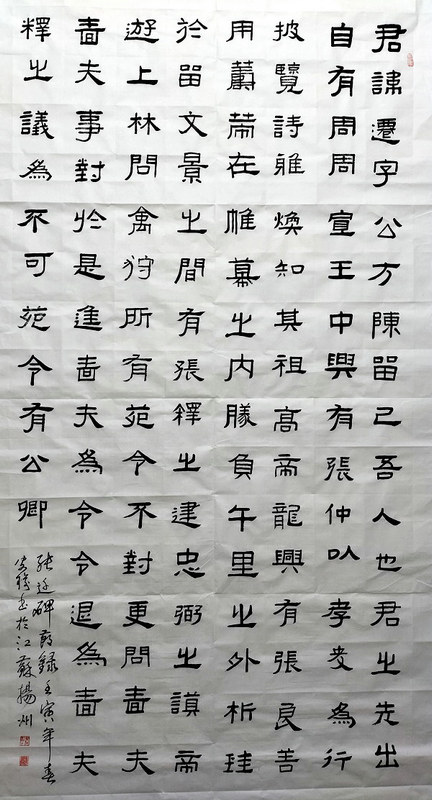 君諱遷字公方陳留己吾人也君之先出
自有周周宣王中興有張仲以孝友為行
披覽詩雅煥知其祖高帝龍興有張良善
用籌策在帷幕之內勝負千里之外析珪
於留文景之間有張釋之建忠弼之謨帝
遊上林問禽狩所有苑令不對更問嗇夫
嗇夫事對於是進嗇夫為令令退為嗇夫
釋之議為不可苑令有公卿
張遷碑節錄壬寅年春
書於江蘇揚州